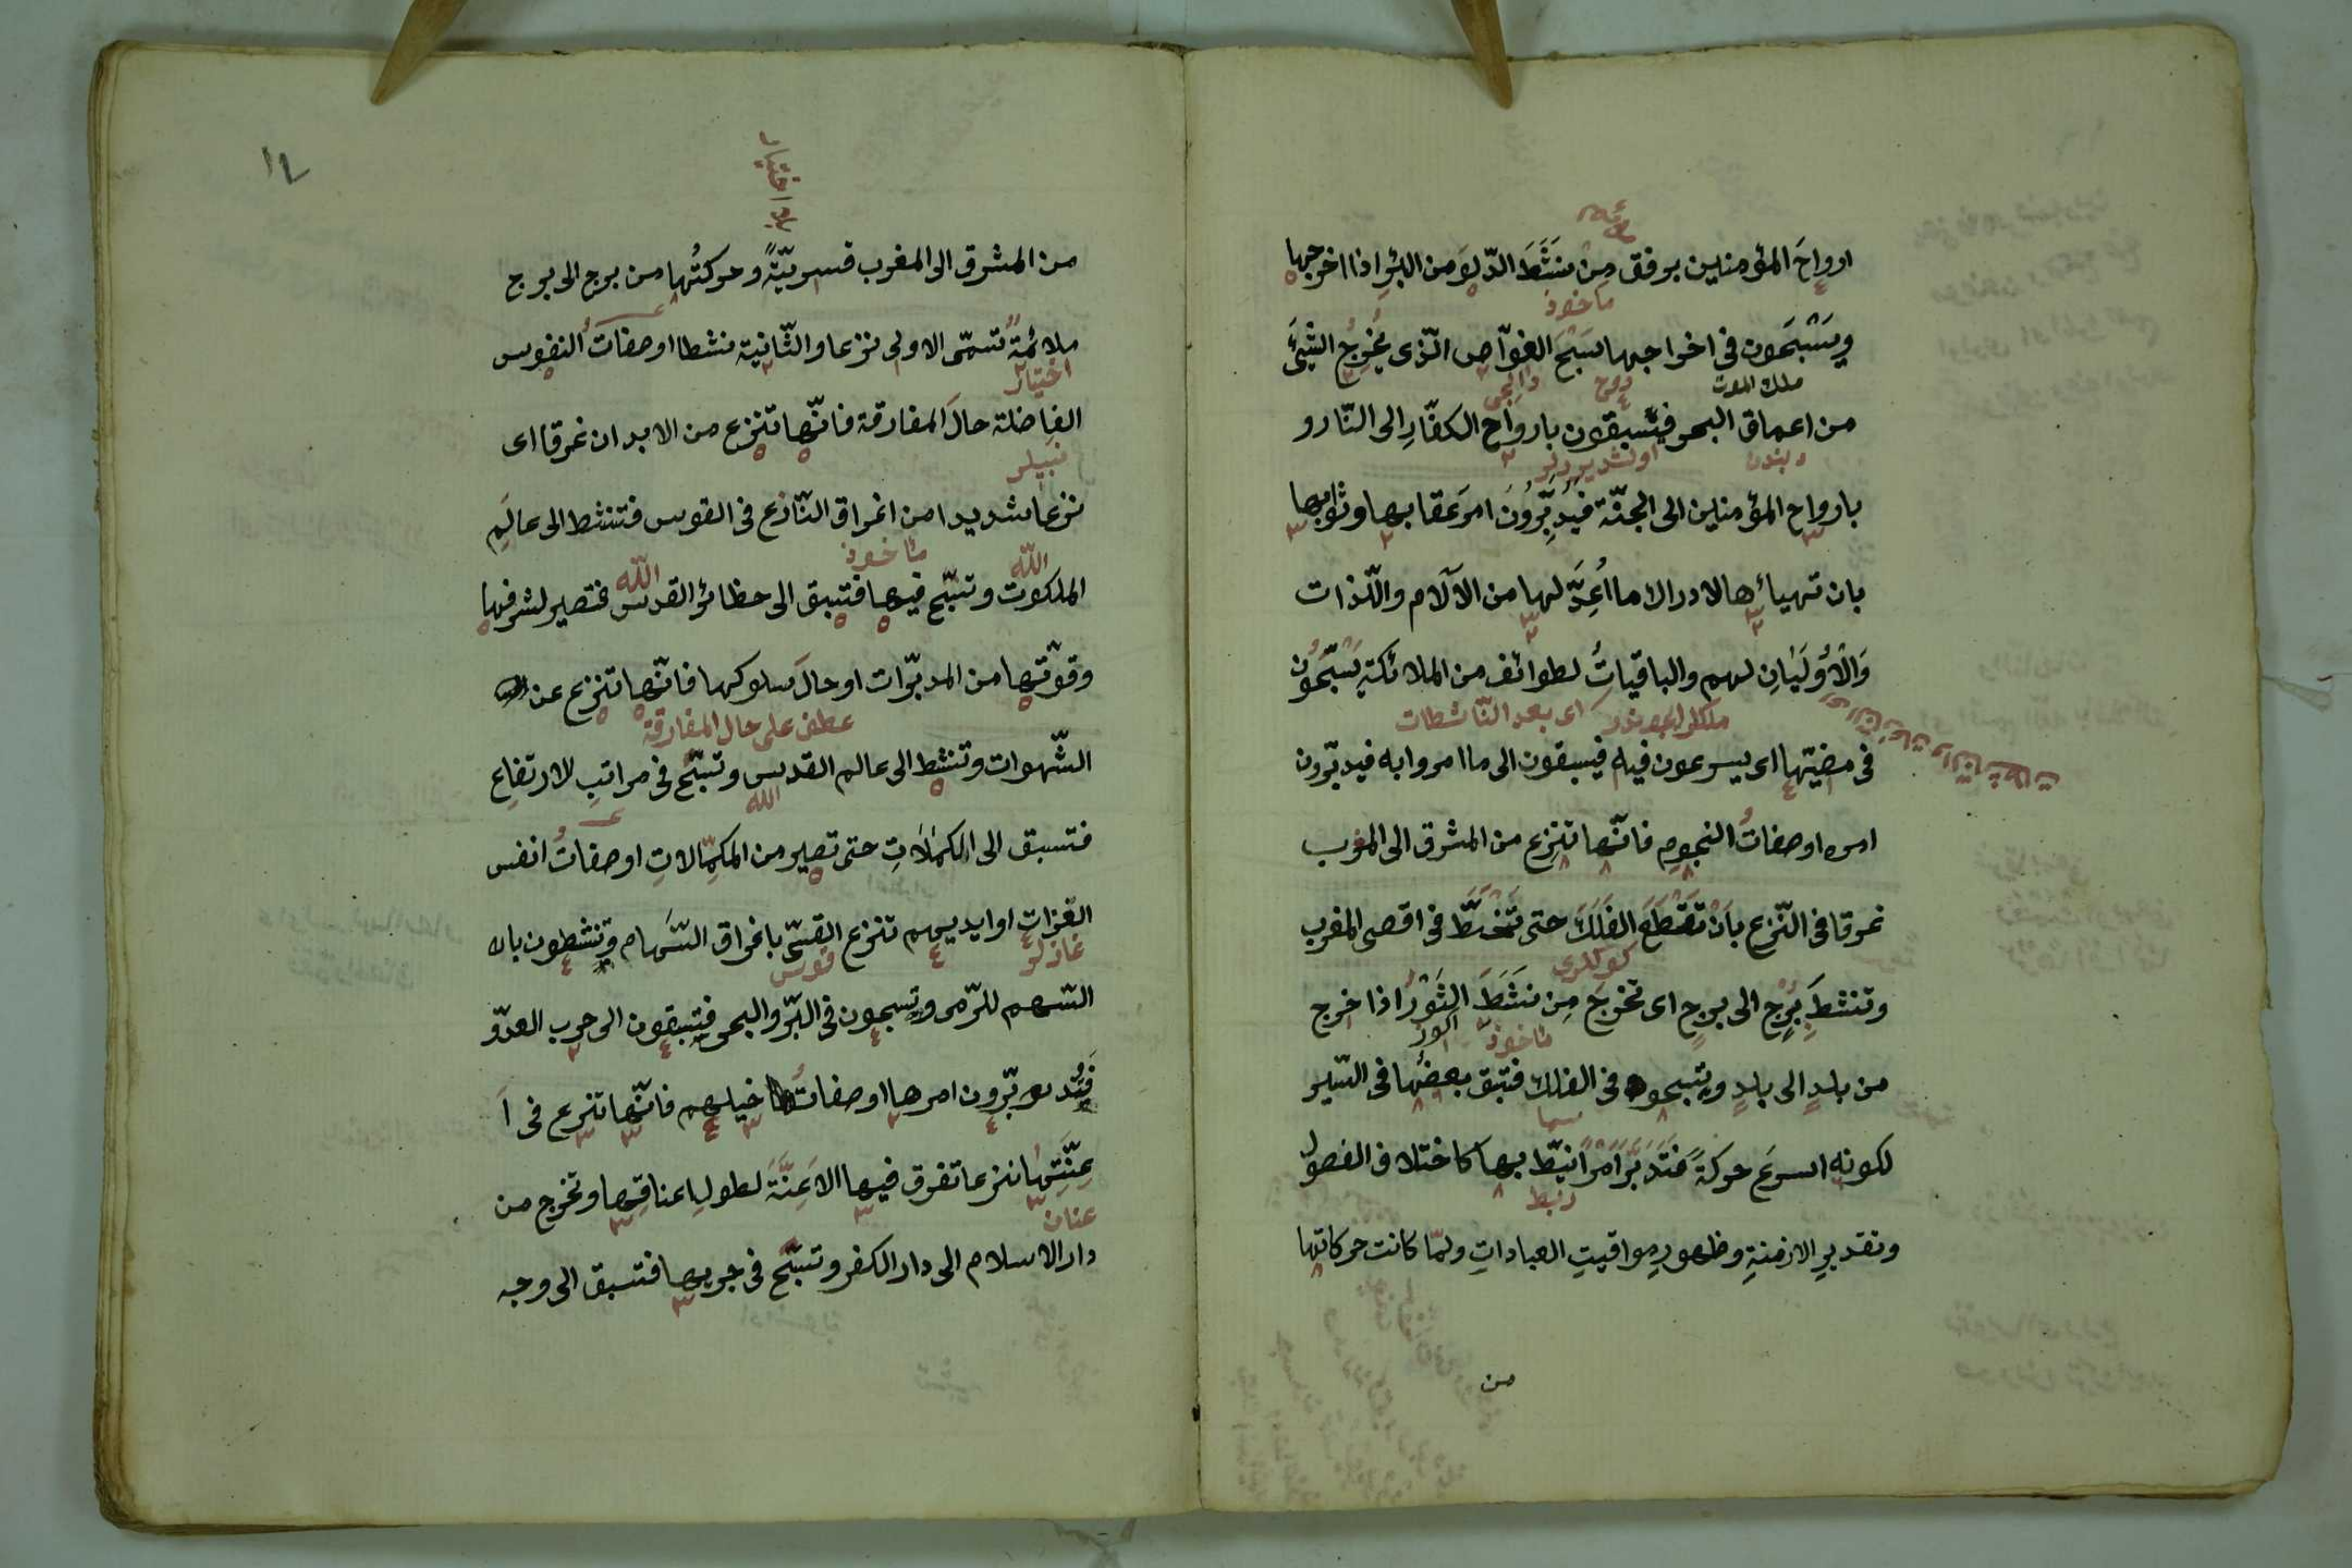 ارواحَ المؤمنين برفق مِن نَشَطَ الدّلوَ من البئرِ اذا اخرجها
ماخوذ
ويَسْبَحون فى اخراجها سَبْحَ الغوّاص الّذى يُخْرِجُ الشّئَ
ملك الموت
من اعماق البحر فيسبقون بارواح الكفّارِ الى النّار و
بارواح المؤمنين الى الجنّة فيُدَبِّرُونَ امرَ عقابها وثوابها
بان تهيائها لادراك ما اُعِدَّ لها من الآلام والّلذات
وَالْاُوْلَيَانِ لهم والباقياتُ لطوائف من الملائكةِ يَسْبَحُون
اى بعد النّاشطات
فى مضيّها اى يسرعون فيه فيسبقون الى ما امروا به فيدبّرون
امره او صفاتُ النجومِ فانّها تنزع من المشرق الى المغرب
غرقا فى النّزع بِاَنْ تَقْطَعَ الفَلَكَ حتى تَنْحَطَّ فى اقصى المغرب
وتنشطَ بُرْجٍ الى برجٍ اى تخرجَ مِن نَشَطَ الثَوْرُ اذا خرج
ماخوذ
من بلدٍ الى بلدٍ ويسبحون فى الفلك فتسبق بعضُها فى السّير
لكونه اسرعَ حركةً فَتُدَبِّرَ اَمْرًا نيطَ بها كاختلاف الفصول
وتقديرِ الازمنةِ وظهورِ مواقيتِ العباداتِ ولمّا كانت حركاتها
من
١٢
من المشرق الى المغرب قسريّةً وحركتُها من برج الى برج
ملائمةً تسمّى الاولى نزعا والثّانية نشطا او صفاتُ النفوس
اختيار
الفاضلة حالَ المفارقة فانّها تنزع من الابدان غرقا اى
نزعا شديدا من اغراق النّازع فى القوس فتنشط الى عالَمِ
الله ماخوذ الله
الملكوت وتسبّح فيها فتسبق الى حظائر القدس فتصير لشرفها
وقوّتها من المدبّرات او حالَ سلوكها فانّها تنزع عن
عطف على حال المفارقة
الشّهوات وتنشط الى عالم القدس وتسبّح فى مراتبِ الارتفاعِ
الله
فتسبق الى الكمالاتِ حتى تصير من المكمّلاتِ او صفاتُ انفس
الغزات او ايديهم تنزع القسىّ باغراق السّهام وتنشطون بال
قوس
السّهم للرّمى وتسبحون فى البَرّ والبحر فتسبقون الى حرب العدوّ
فتُدبّرون امرها او صفاتُ خيلهم فانّها تنزع فى اَ
عِنَّتِها نزعا تغرق فيها الاَعِنَّةَ لطولِ اعناقِها وتخرج من
عنان
دار الاسلام الى دار الكفر وتسبّح فى جريها فتسبق الى وجه